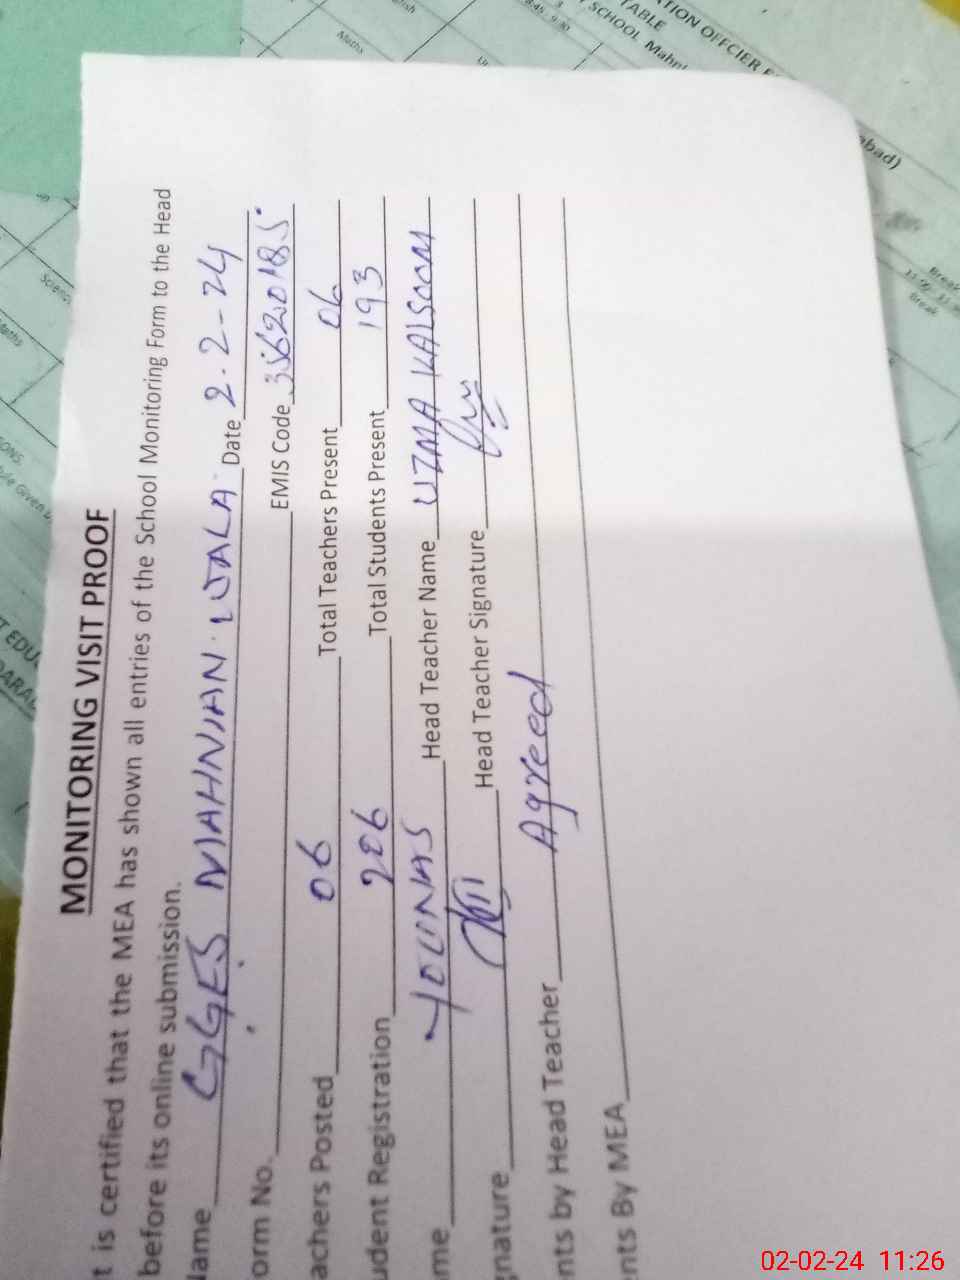 MONITORING VISIT PROOF
t is certified that the MEA has shown all entries of the School Monitoring Form to the Head
before its online submission.
Name GGES MAHNIAN WALA Date 2-2-24
orm No. EMIS Code 35620185
achers Posted 06 Total Teachers Present 06
udent Registration 206 Total Students Present 193
me YOUNAS Head Teacher Name UZMA KALSOOM
gnature Head Teacher Signature
nts by Head Teacher Agreed
nts By MEA
TION OFFCIER
TABLE
SCHOOL Mahni
8:45 - 9:30
abad)
Maths
Break
Break
T EDU
02-02-24 11:26